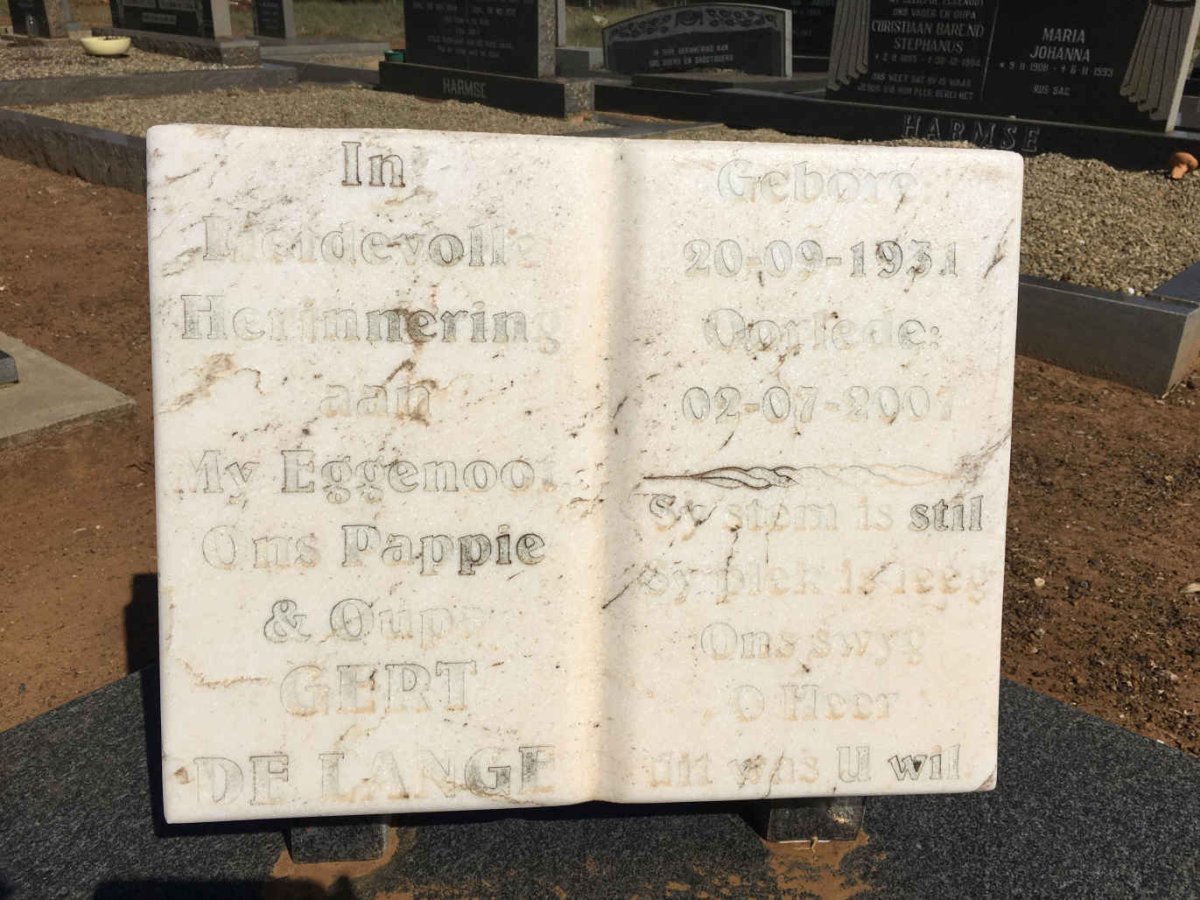 HARMSE
CHRISTIAAN BAREND
STEPHANUS
MARIA
JOHANNA
HARMSE
In
Liefdevolle
Herinnering
aan
My Eggenoot
Ons Pappie
& Oupa
GERT
DE LANGE
Gebore:
20-09-1931
Oorlede:
02-07-2007
Sy stem is stil
Sy plek is leeg
Ons swyg
O Heer
dit was U wil.